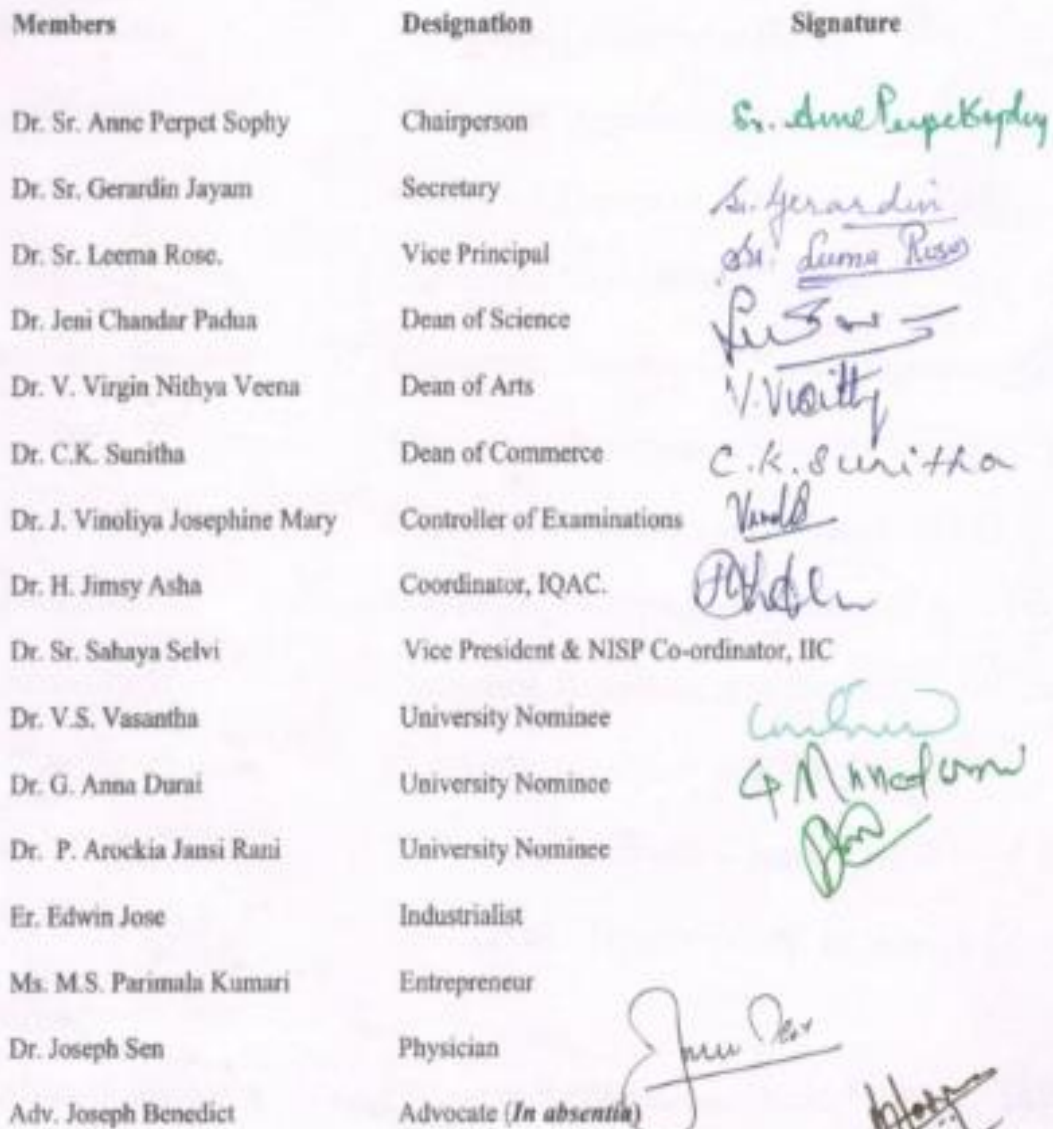 Members Designation Signature
Dr. Sr. Anne Perpet Sophy Chairperson Sr. Anne Perpet Sophy
Dr. Sr. Gerardin Jayam Secretary Sr. Gerardin
Dr. Sr. Leema Rose. Vice Principal Sr. Leema Rose
Dr. Jeni Chandar Padua Dean of Science
Dr. V. Virgin Nithya Veena Dean of Arts
Dr. C.K. Sunitha Dean of Commerce C.K. Sunitha
Dr. J. Vinoliya Josephine Mary Controller of Examinations
Dr. H. Jimsy Asha Coordinator, IQAC.
Dr. Sr. Sahaya Selvi Vice President & NISP Co-ordinator, IIC
Dr. V.S. Vasantha University Nominee
Dr. G. Anna Durai University Nominee
Dr. P. Arockia Jansi Rani University Nominee
Er. Edwin Jose Industrialist
Ms. M.S. Parimala Kumari Entrepreneur
Dr. Joseph Sen Physician
Adv. Joseph Benedict Advocate (In absentia)